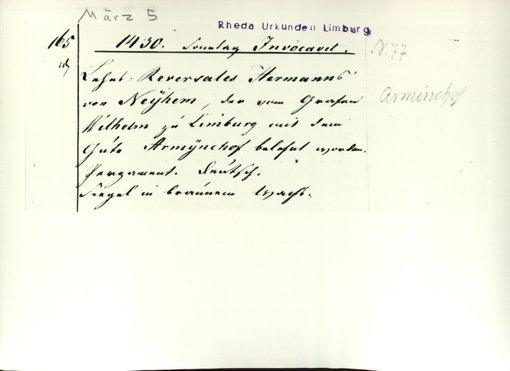 März 5
Rheda Urkunden Limburg
165
1430. Sonntag Invocavit.
V. 77
Lehns-Reversales Hermanns
von Neÿhem, der vom Grafen
Arminchof
Wilhelm zu Limburg mit dem
Gute Armÿnchof belehnt worden.
Pergament. Deutsch.
Siegel in braunem Wachs.